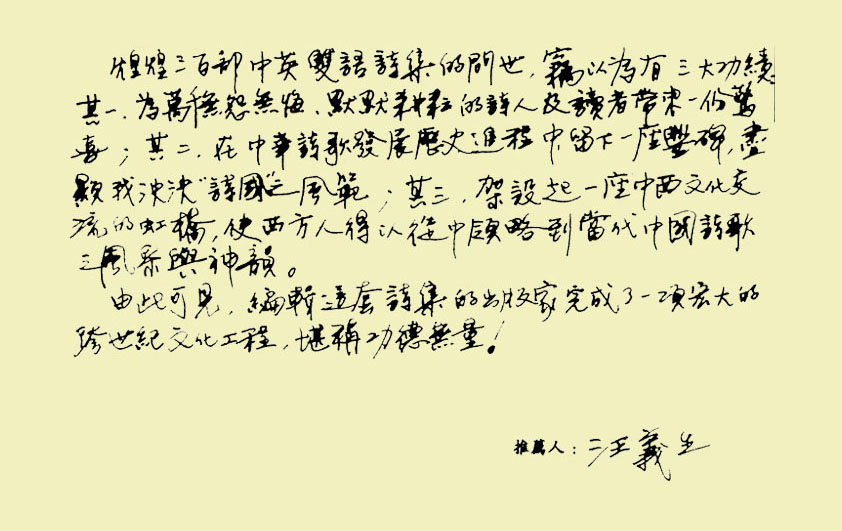 煌煌三百部中英雙語詩集的問世，竊以為有三大功績
其一、為萬千無怨無悔、默默耕耘的詩人及讀者帶來一份驚
喜；其二、在中華詩歌發展歷史進程中，留下一座豐碑，盡
顯我泱泱“詩國”之風範；其三、架設起一座中西文化交
流的虹橋，使西方人得以從中領略到當代中國詩歌
之風采與神韻。
由此可見，編輯這套詩集的出版家完成了一項宏大的
跨世紀文化工程，堪稱功德無量！
推薦人：汪義生